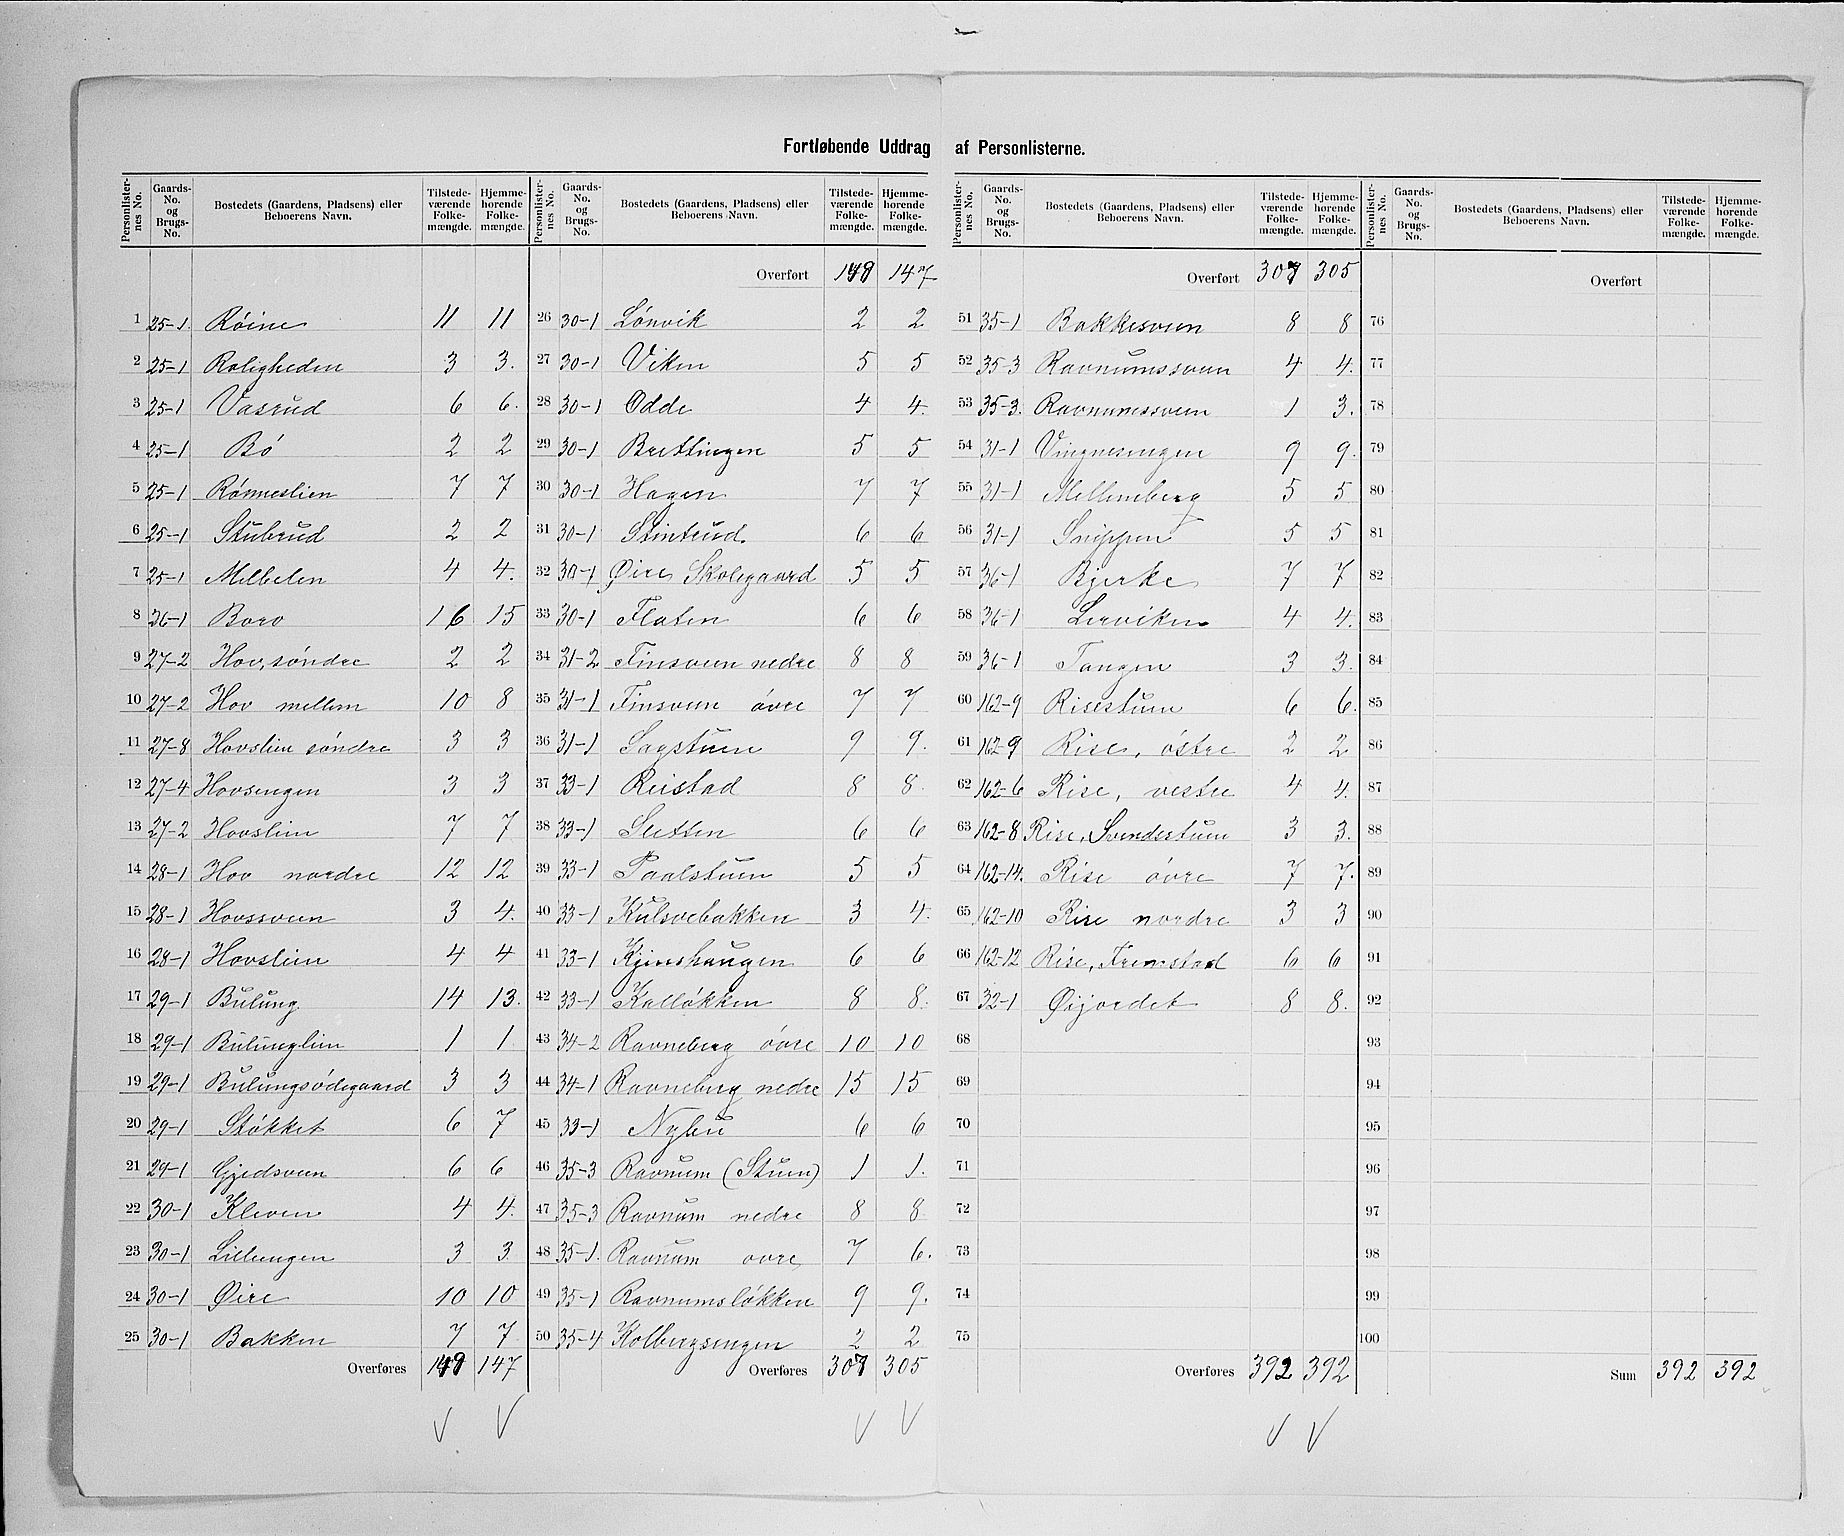 Fortløbende Uddrag af Personlisterne.
Personlister-nes No. | Gaards-No. og Brugs-No. | Bostedets (Gaardens, Pladsens) eller Beboerens Navn. | Tilstede-værende Folke-mængde. | Hjemme-hørende Folke-mængde.
1 25-1. Röine 11 11
2 25-1 Roligheden 3 3.
3 25-1 Vasrud 6 6.
4 25-1 Bö 2 2
5 25-1 Rönneslien 7 7
6 25-1 Stubrud 2 2
7 25-1 Melbelen 4 4.
8 26-1 Boro 16 15
9 27-2 Hov, söndre 2 2
10 27-2 Hov mellem 10 8
11 27-8 Hovslien söndre 3 3
12 27-4 Hovsengen 3 3
13 27-2 Hovslien 7 7
14 28-1 Hov nordre 12 12
15 28-1 Hovssveen 3 4.
16 28-1 Hovslien 4 4
17 29-1 Bulung 14 13.
18 29-1 Bulunglien 1 1
19 29-1 Bulungsödegaard 3 3
20 29-1 Stökket 6 7
21 29-1 Gjedsveen 6 6
22 30-1 Kleven 4 4.
23 30-1 Lillengen 3 3
24 30-1 Øire 10 10
25 30-1 Bakken 7 7
Overføres 148 147
Personlister-nes No. | Gaards-No. og Brugs-No. | Bostedets (Gaardens, Pladsens) eller Beboerens Navn. | Tilstede-værende Folke-mængde. | Hjemme-hørende Folke-mængde.
Overført 148 147
26 30-1 Lönvik 2 2
27 30-1 Viken 5 5
28 30-1 Odde 4 4.
29 30-1 Brettingen 5 5
30 30-1 Hagen 7 7
31 30-1 Stintrud. 6 6
32 30-1 Øire Skolegaard 5 5
33 30-1 Flaten 6 6
34 31-2 Finsveen nedre 8 8
35 31-1 Finsveen övre 7 7
36 31-1 Sagstuen 9 9.
37 33-1 Reistad 8 8
38 33-1 Sletten 6 6
39 33-1 Paalstuen 5 5
40 33-1 Kulsvebakken 3 4.
41 33-1 Kjinshaugen 6 6
42 33-1 Kallökken 8 8.
43 34-2 Ravneberg övre 10 10
44 34-1 Ravneberg nedre 15 15
45 33-1 Nybu 6 6
46 35-3 Ravnum (Stuen) 1 1.
47 35-3 Ravnum nedre 8 8
48 35-1. Ravnum ovre 7 6.
49 35-1 Ravnumslökken 9 9.
50 35-4 Kolbergsengen 2 2
Overføres 308 305
Personlister-nes No. | Gaards-No. og Brugs-No. | Bostedets (Gaardens, Pladsens) eller Beboerens Navn. | Tilstede-værende Folke-mængde. | Hjemme-hørende Folke-mængde.
Overført 308 305
51 35-1 Bakkesveen 8 8
52 35-3 Ravnumssveen 4 4.
53 35-3. Ravnumssveen 1 3.
54 31-1 Vingnesengen 9 9.
55 31-1 Mellemberg 5 5
56 31-1 Snippen 5 5
57 36-1 Bjerke 7 7
58 36-1 Lerviken 4 4.
59 36-1 Tangen 3 3.
60 162-9 Risestuen 6 6.
61 162-9 Rise, östre 2 2
62 162-6 Rise, vestre 4 4.
63 162-8 Rise, Svendsstuen 3 3.
64 162-14. Rise övre 7 7.
65 162-10 Rise nordre 3 3
66 162-12 Rise, Fremstad 6 6
67 32-1 Øijordet 8 8.
68
69
70
71
72
73
74
75
Overføres 392 392
Personlister-nes No. | Gaards-No. og Brugs-No. | Bostedets (Gaardens, Pladsens) eller Beboerens Navn. | Tilstede-værende Folke-mængde. | Hjemme-hørende Folke-mængde.
Overført
76
77
78
79
80
81
82
83
84
85
86
87
88
89
90
91
92
93
94
95
96
97
98
99
100
Sum 392 392